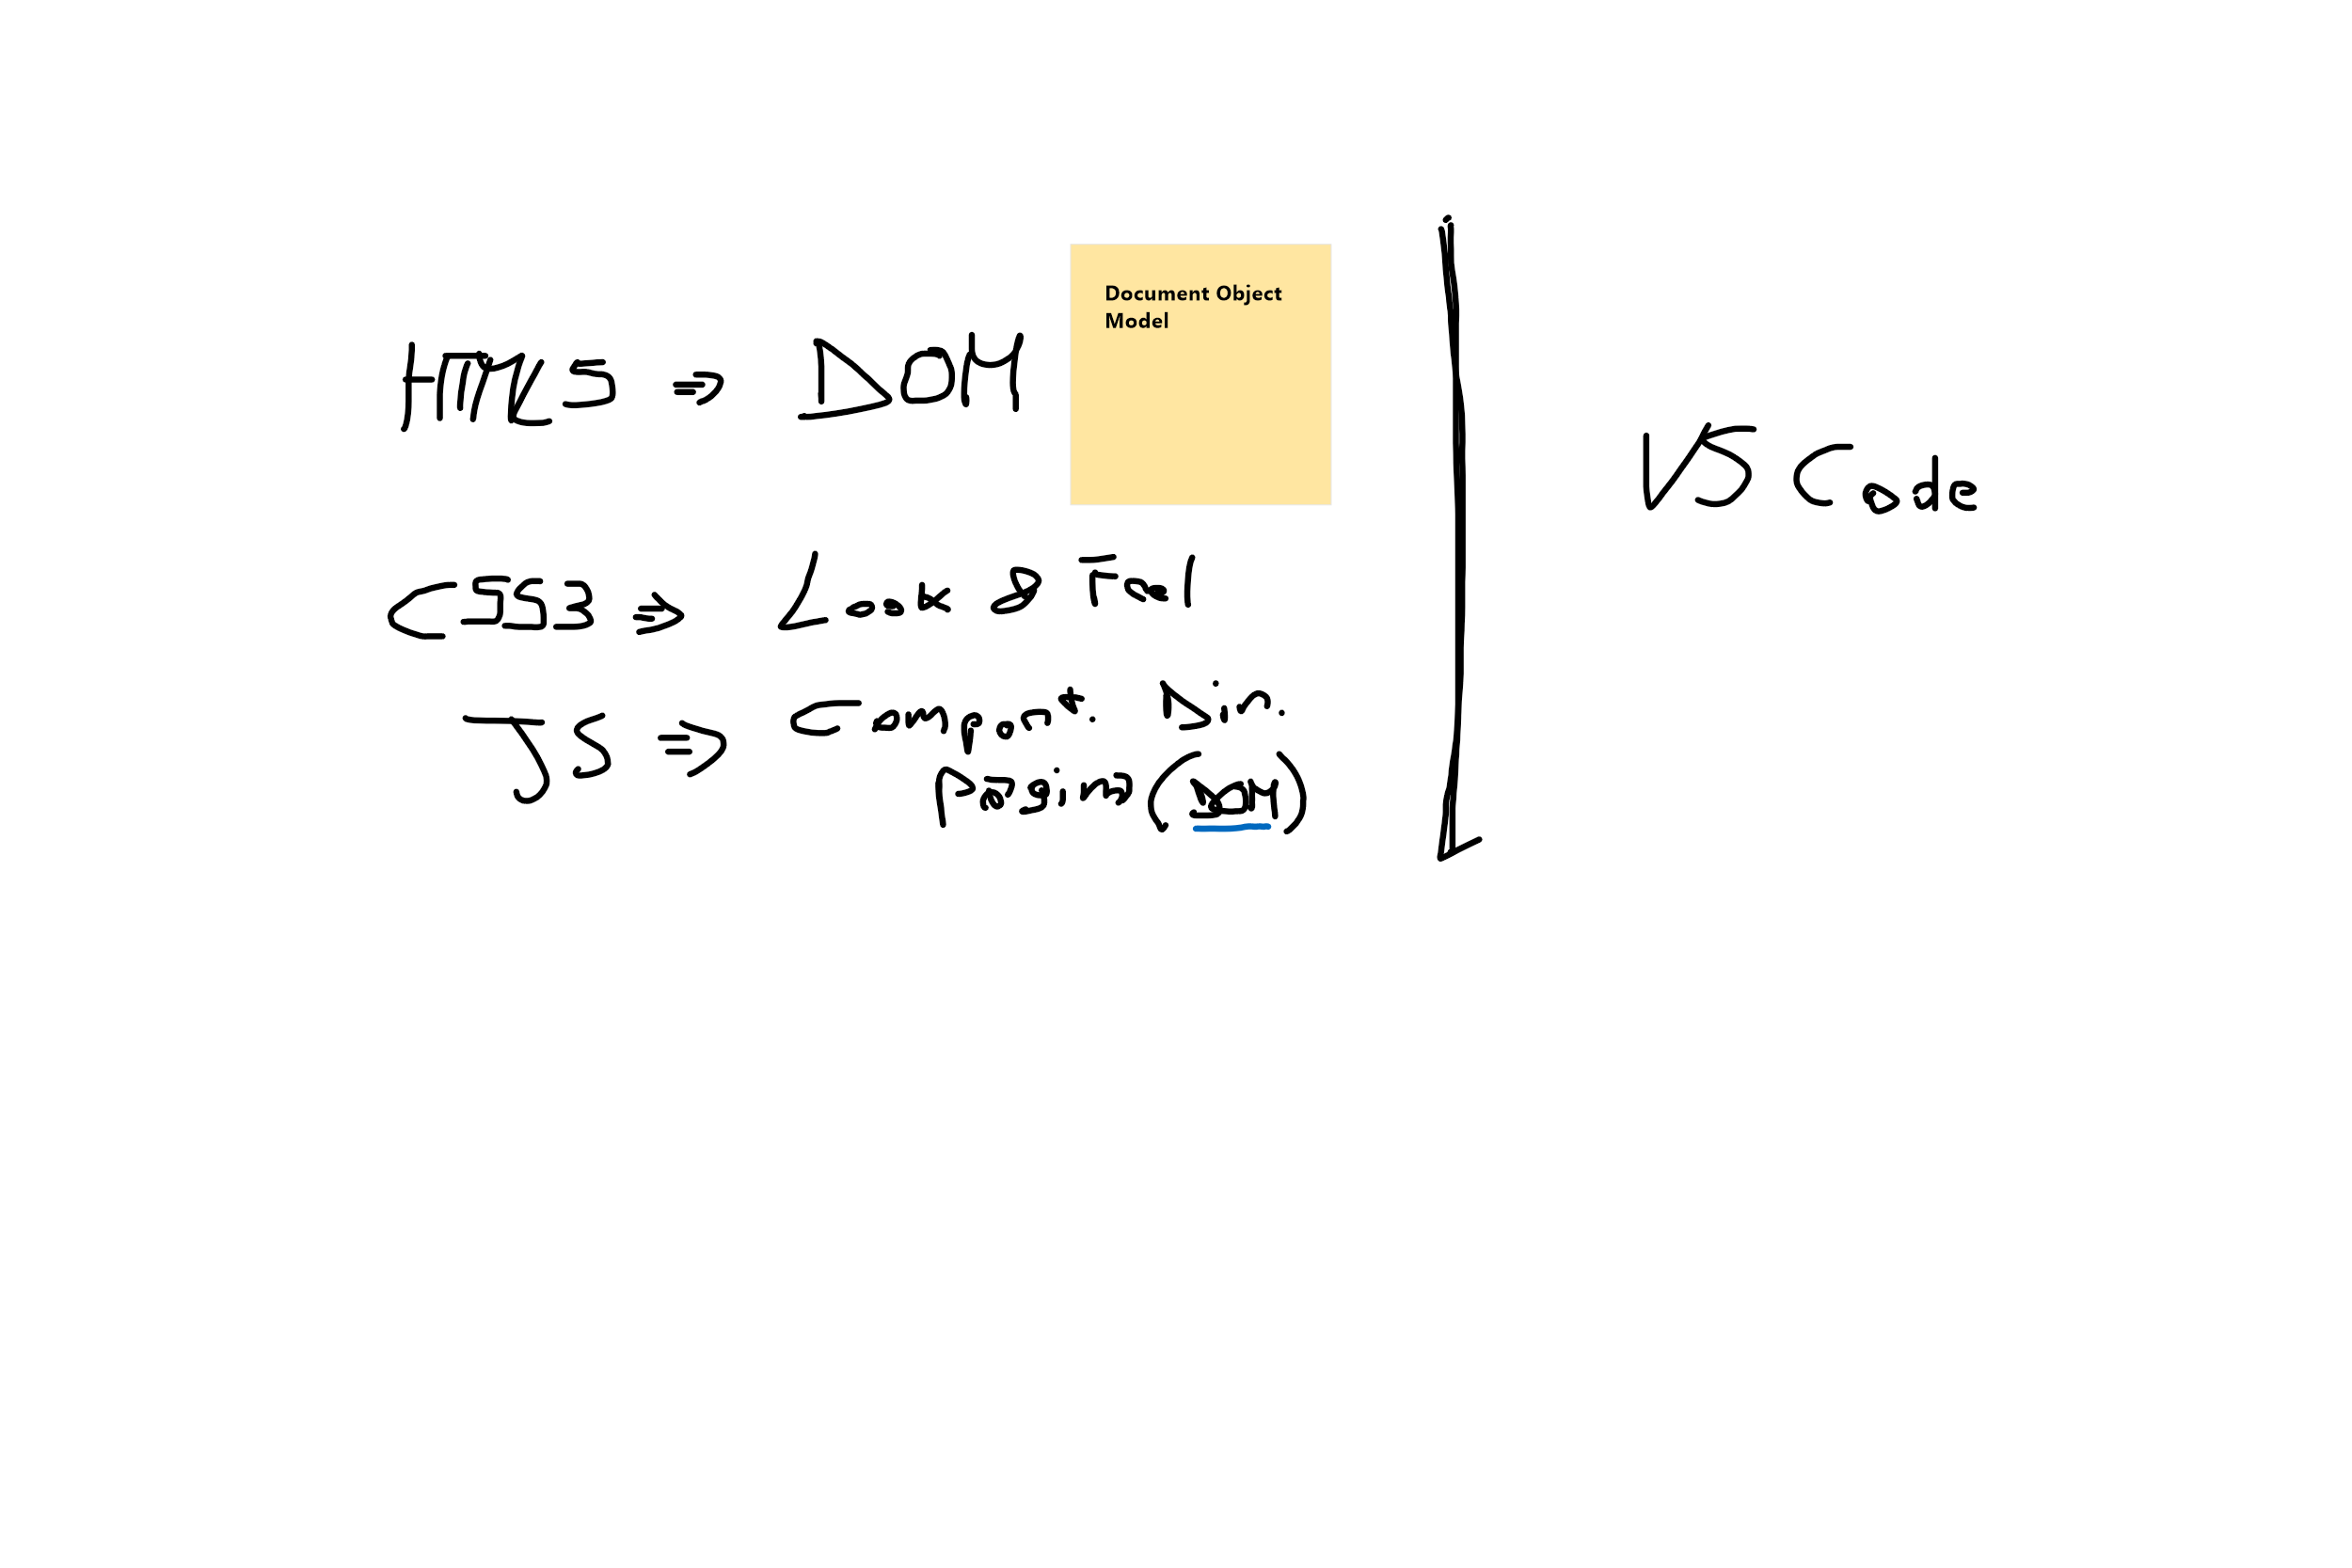 HTML5 => DOM
Document Object
Model
CSS3 => Look & Feel
JS => Comport. Din.
Pagina (DOM)
VS Code